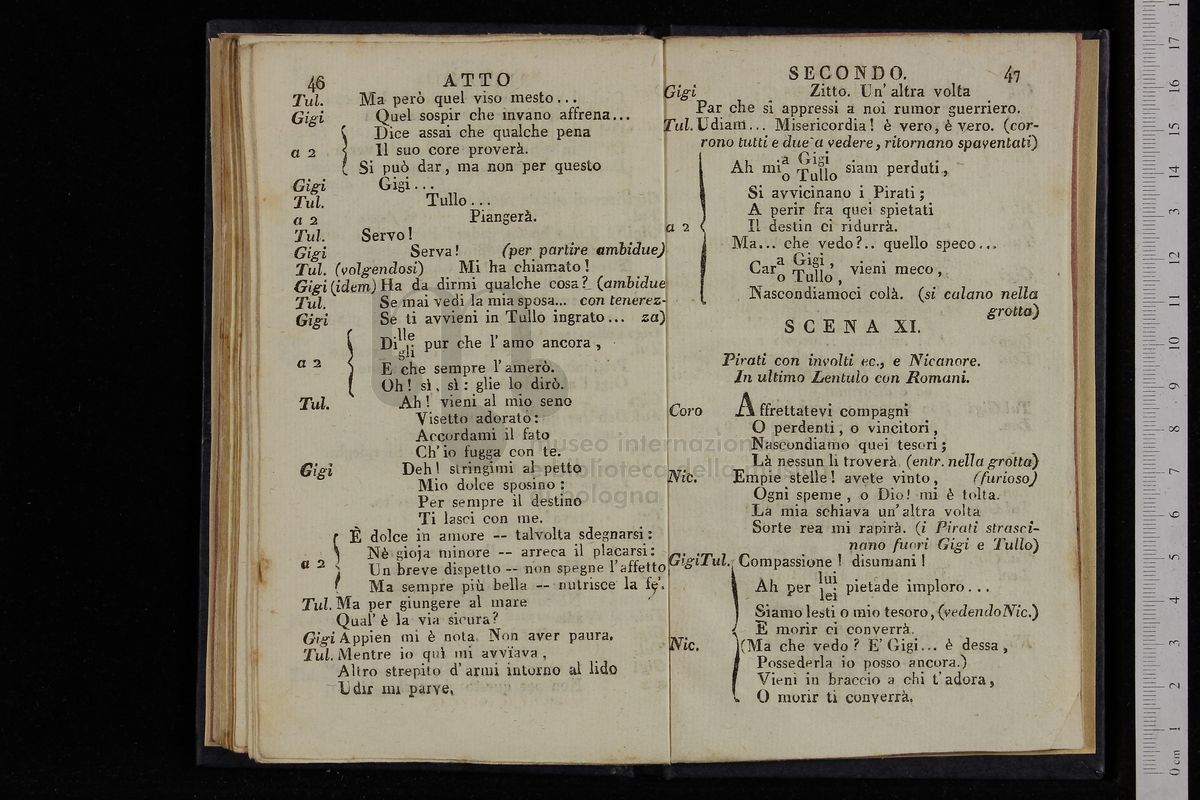 46 ATTO
Tul. Ma però quel viso mesto...
Gigi Quel sospir che invano affrena...
Dice assai che qualche pena
a 2 Il suo core proverà.
Si può dar, ma non per questo
Gigi Gigi...
Tul. Tullo...
a 2 Piangerà.
Tul. Servo!
Gigi Serva! (per partire ambidue)
Tul. (volgendosi) Mi ha chiamato!
Gigi (idem) Ha da dirmi qualche cosa? (ambidue
Tul. Se mai vedi la mia sposa... con tenerez-
Gigi Se ti avvieni in Tullo ingrato... za)
Di lle gli pur che l'amo ancora,
a 2 E che sempre l'amerò.
Oh! sì, sì: glie lo dirò.
Tul. Ah! vieni al mio seno
Visetto adorato:
Accordami il fato
Ch'io fugga con te.
Gigi Deh! stringimi al petto
Mio dolce sposino:
Per sempre il destino
Ti lasci con me.
È dolce in amore -- talvolta sdegnarsi:
Nè gioja minore -- arreca il placarsi:
a 2 Un breve dispetto -- non spegne l'affetto
Ma sempre più bella -- nutrisce la fe'.
Tul. Ma per giungere al mare
Qual' è la via sicura?
Gigi Appien mi è nota. Non aver paura.
Tul. Mentre io quì mi avvïava,
Altro strepito d'armi intorno al lido
Udir mi parve.
SECONDO. 47
Gigi Zitto. Un' altra volta
Par che si appressi a noi rumor guerriero.
Tul. Udiam... Misericordia! è vero, è vero. (cor-
rono tutti e due a vedere, ritornano spaventati)
Ah mi a Gigi o Tullo siam perduti,
Si avvicinano i Pirati;
A perir fra quei spietati
a 2 Il destin ci ridurrà.
Ma... che vedo?.. quello speco...
Car a Gigi, o Tullo, vieni meco,
Nascondiamoci colà. (si calano nella
grotta)
SCENA XI.
Pirati con involti ec., e Nicanore.
In ultimo Lentulo con Romani.
Coro Affrettatevi compagni
O perdenti, o vincitori,
Nascondiamo quei tesori;
Là nessun li troverà. (entr. nella grotta)
Nic. Empie stelle! avete vinto, (furioso)
Ogni speme, o Dio! mi è tolta.
La mia schiava un' altra volta
Sorte rea mi rapirà. (i Pirati strasci-
nano fuori Gigi e Tullo)
Gigi Tul. Compassione! disumani!
Ah per lui lei pietade imploro...
Siamo lesti o mio tesoro, (vedendo Nic.)
E morir ci converrà.
Nic. (Ma che vedo? E' Gigi... è dessa,
Possederla io posso ancora.)
Vieni in braccio a chi t'adora,
O morir ti converrà.
museo internazionale
e biblioteca della musica
bologna
0 cm 1 2 3 4 5 6 7 8 9 10 11 12 13 14 15 16 17